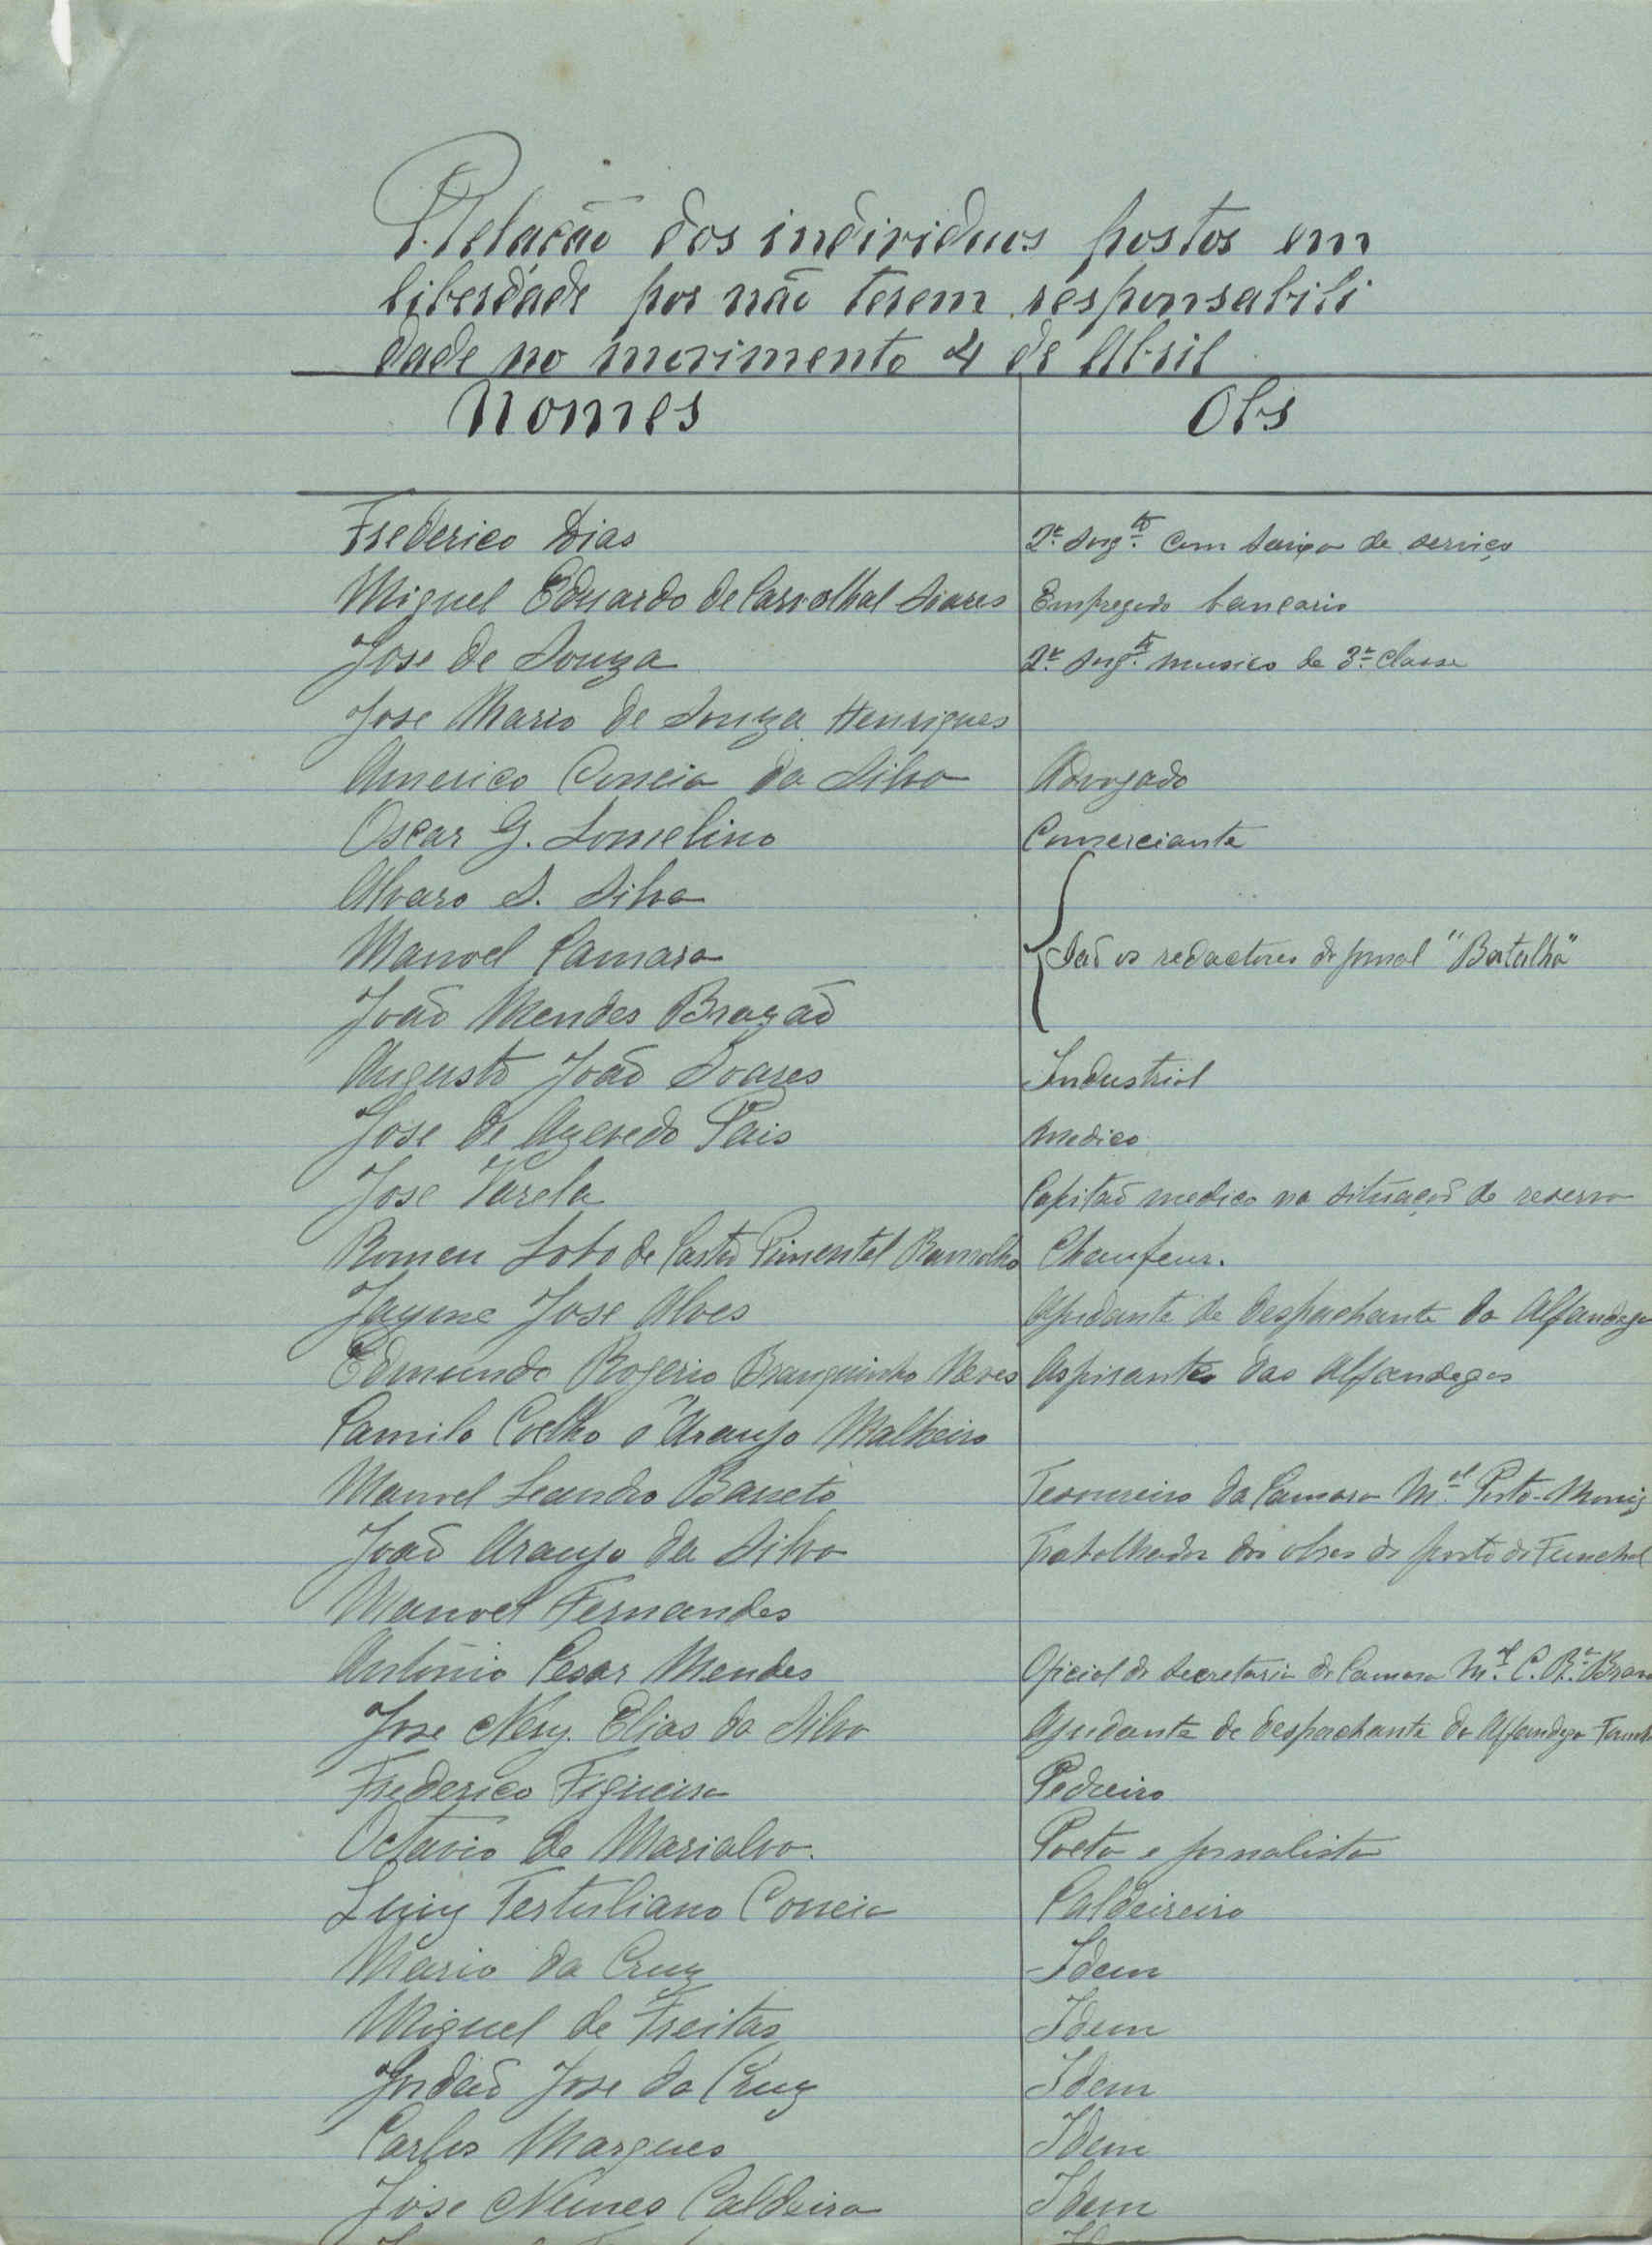 Relação dos individuos postos em
liberdade por não terem responsabili
dade no movimento 4 de Abril
Nomes Obs
Frederico Dias 2º Sargtº com baixa de serviço
Miguel Eduardo de Carvalhal Soares Empregado bancario
Jose de Souza 2º Sargtº musico de 3ª classe
Jose Mario de Souza Henriques
Americo Correia da Silva Advogado
Oscar G. Lomelino Comerciante
Alvaro S. Silva
Manoel Camara São os redactores do jornal "Batalha"
João Mendes Brazão
Augusto João Soares Industrial
Jose de Azevedo Pais Medico
Jose Varela Capitão medico na situação de reserva
Romeu Lobo de Castro Pimentel Ramalho Chaufeur.
Jayme Jose Alves Ajudante de despachante da Alfandega
Edmundo Rogerio Branquinho Neves Aspirante das Alfandegas
Camilo Coelho d'Araujo Malheiro
Manoel Leandro Barreto Tesoureiro da Camara Mal Porto-Moniz
João Araujo da Silva Trabalhador das obras do porto do Funchal
Manoel Fernandes
António Cesar Mendes Oficial da Secretaria da Camara Mal C. Rª Brava
Jose Nery Elias da Silva Ajudante de despachante da Alfandega
Frederico Figueira Pedreiro
Octavio de Marialva. Poeta e jornalista
Luiz Tertuliano Correia Caldeireiro
Mario da Cruz Idem
Miguel de Freitas Idem
Jordão Jose da Cruz Idem
Carlos Marques Idem
Jose Nunes Caldeira Idem